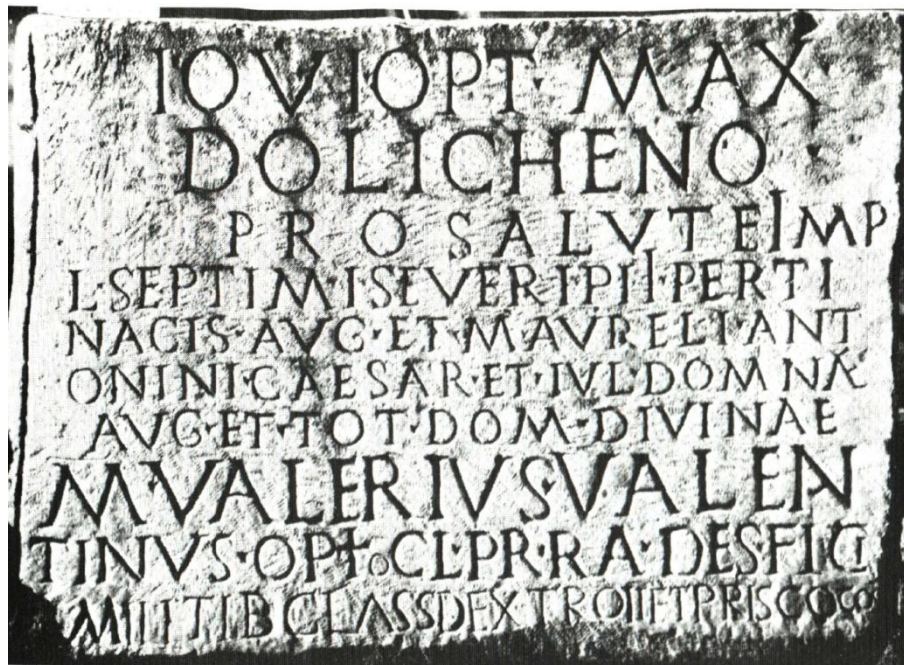 IOVI OPT · MAX
DOLICHENO
PRO SALVTE IMP
L · SEPTIMI · SEVERI PII · PERTI
NACIS · AVG · ET · M AVRELI ANT
ONINI · CAESAR · ET · IVL · DOMNÆ
AVG · ET · TOT · DOM · DIVINAE
M · VALERIVS VALEN
TINVS · OPTIO CL · PR · RA · DES · FICI
MILITIB CLASS D EXTRO II ET PRISCO COS